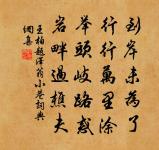 到岸未為了
行行萬里涂
舉頭岐路惑
岩畔過樵夫
王柏題澤翁小卷詞典
網集